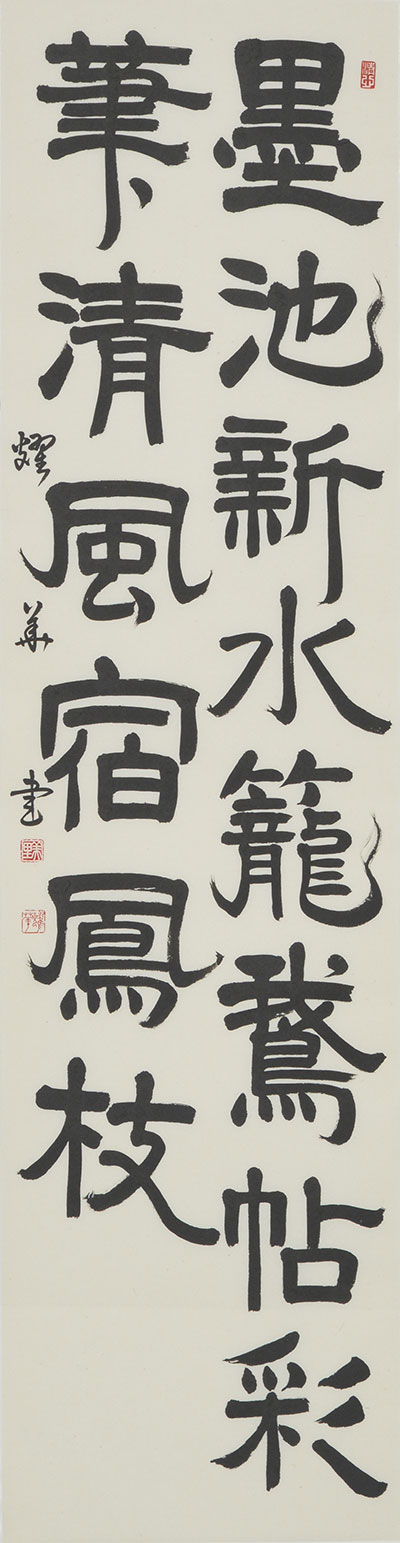 墨池新水籠鵝帖彩
筆清風宿鳳枝
燿華書